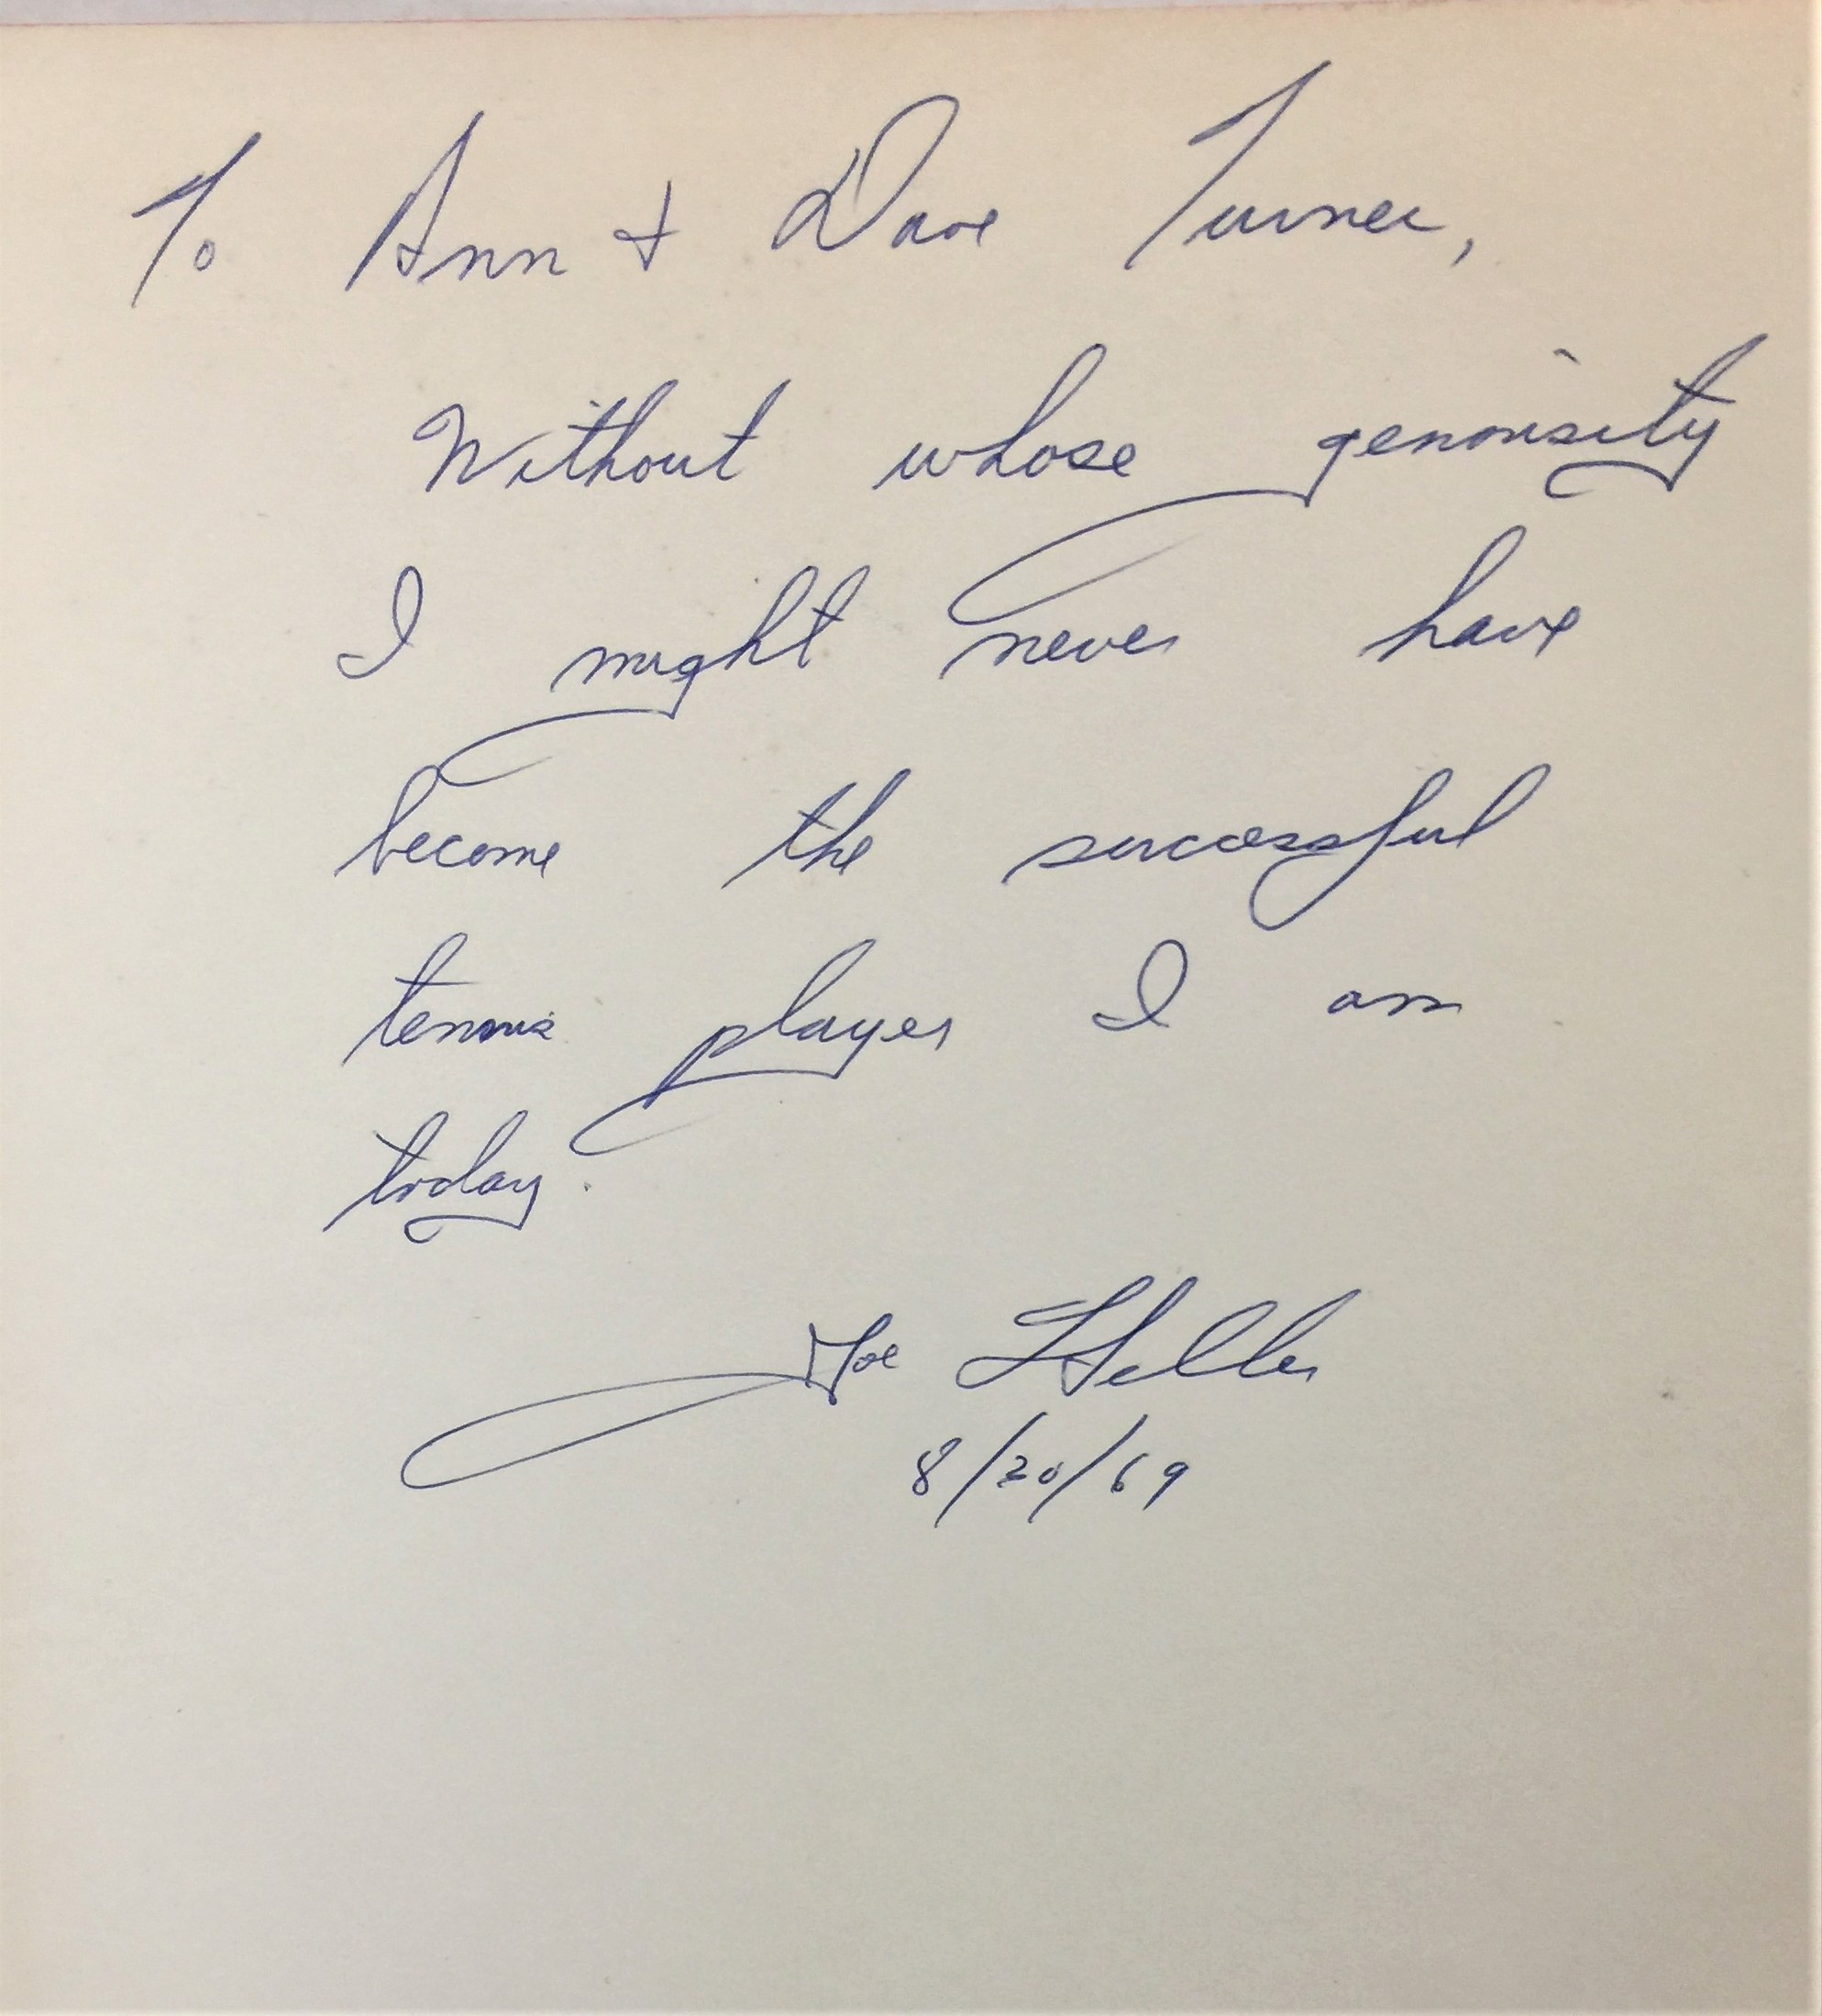 To Ann & Dave Turner,
Without whose generosity
I might never have
become the successful
tennis player I am
today.
Joe Heller
8/20/69